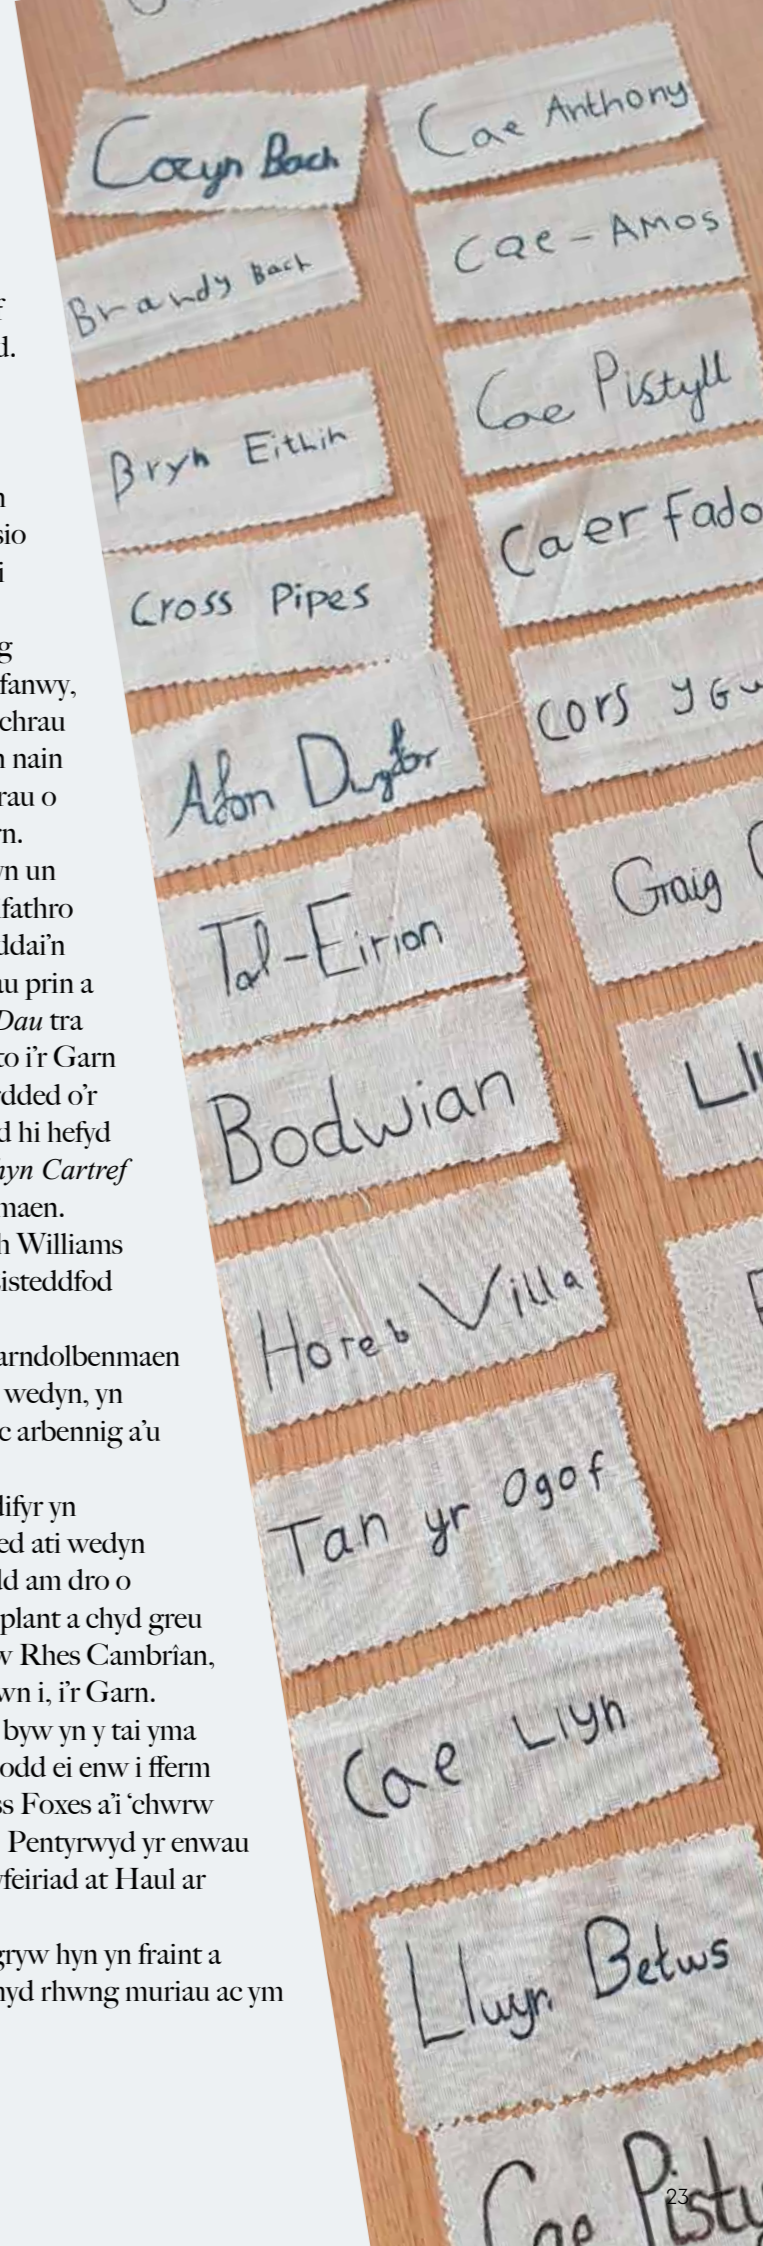 d.
sio
i
g
fanwy,
chrau
nain
rau o
rn.
yn un
fathro
ddai'n
au prin a
Dau tra
to i'r Garn
dded o'r
d hi hefyd
hyn Cartref
maen.
h Williams
isteddfod
arndolbenmaen
wedyn, yn
c arbennig a'u
difyr yn
ed ati wedyn
dd am dro o
plant a chyd greu
w Rhes Cambrîan,
wn i, i'r Garn.
byw yn y tai yma
odd ei enw i fferm
ss Foxes a'i 'chwrw
Pentyrwyd yr enwau
yfeiriad at Haul ar
gryw hyn yn fraint a
hyd rhwng muriau ac ym
Bach
Brandy Bach
Bryn Eithin
Cross Pipes
Afon
Tal-Eirion
Bodwian
Horeb Villa
Tan yr Ogof
Cae Llyn
Llwyn Betws
Cae Pisty
Cae Anthony
Cae-Amos
Cae Pistyll
Caer Fado
Cors y Gw
Graig
Ll
23